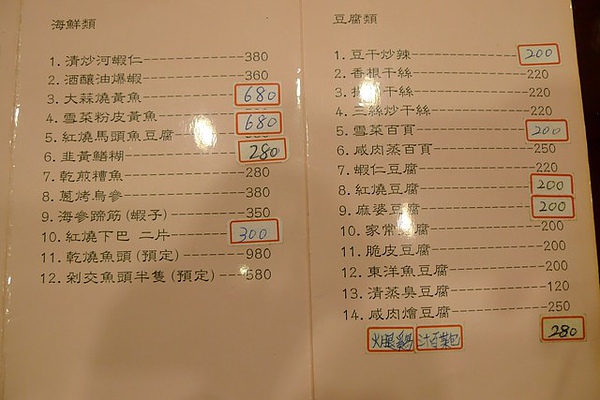 海鮮類
1. 清炒河蝦仁 380
2. 酒釀油爆蝦 360
3. 大蒜燒黃魚 680
4. 雪菜粉皮黃魚 680
5. 紅燒馬頭魚豆腐
6. 韭黃鱔糊 280
7. 乾煎糟魚 280
8. 蔥烤烏參 380
9. 海參蹄筋(蝦子) 350
10. 紅燒下巴 二片 300
11. 乾燒魚頭(預定) 980
12. 剁交魚頭半隻(預定) 580
豆腐類
1. 豆干炒辣 200
2. 香根干絲 220
3. 干絲 220
4. 三絲炒干絲 220
5. 雪菜百頁 200
6. 咸肉蒸百頁 250
7. 蝦仁豆腐 220
8. 紅燒豆腐 200
9. 麻婆豆腐 200
10. 家常豆腐 200
11. 脆皮豆腐 200
12. 東洋魚豆腐 200
13. 清蒸臭豆腐 120
14. 咸肉燴豆腐 250
火腿雞汁百菜包 280